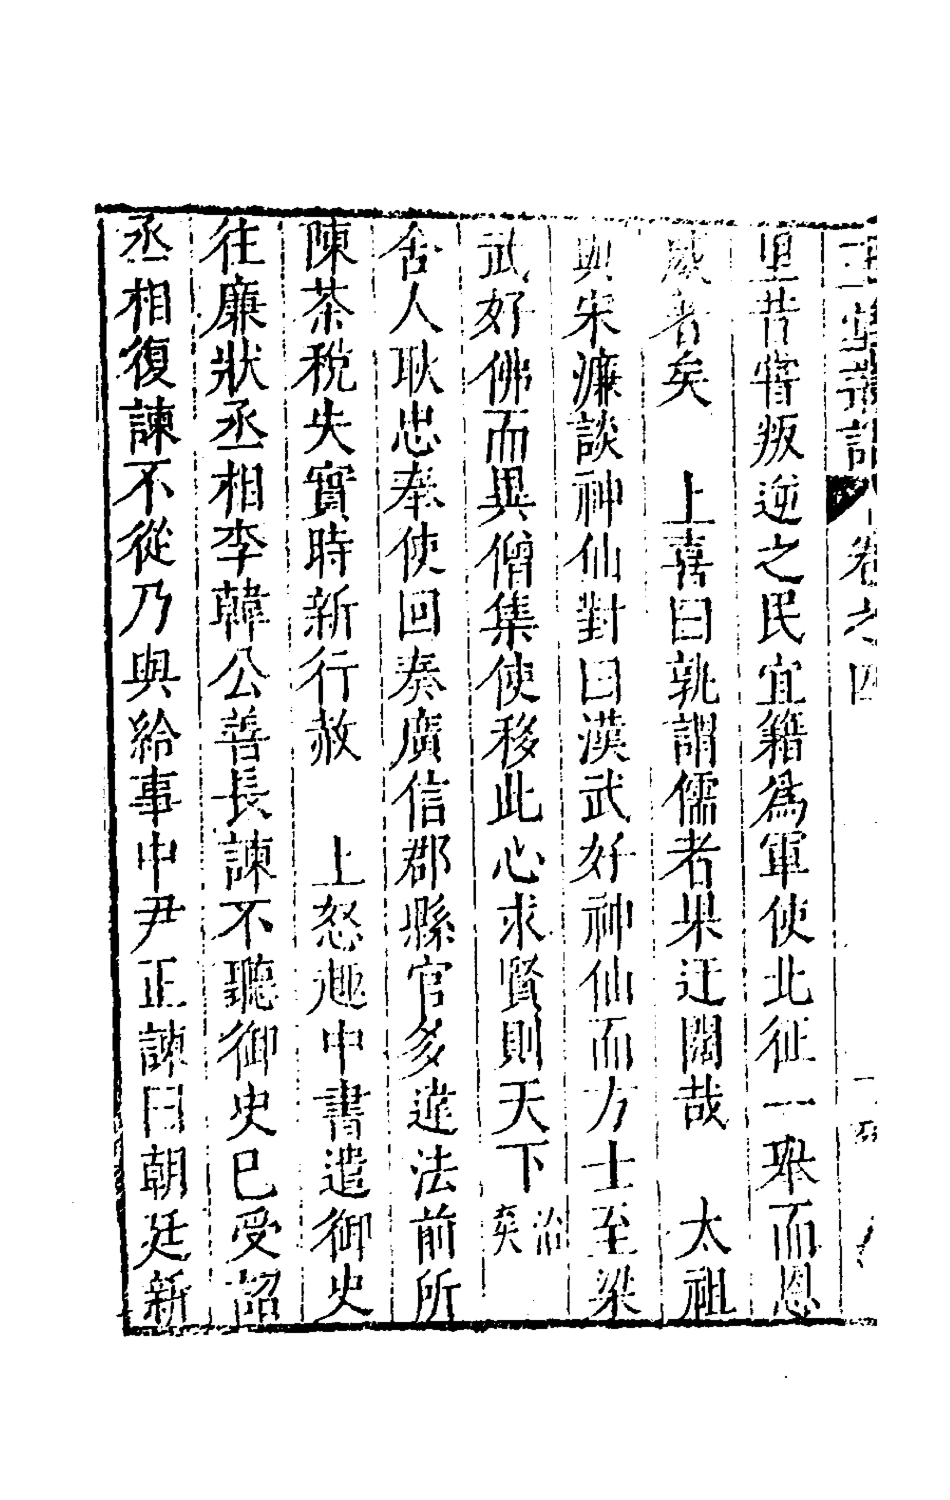 玉堂叢語 卷之四
里昔嘗叛逆之民宜籍為軍使北征一舉而恩
威著矣　上喜曰孰謂儒者果迂闊哉　太祖
與宋濂談神仙對曰漢武好神仙而方士至梁
武好佛而異僧集使移此心求賢則天下治矣
舍人耿忠奉使回奏廣信郡縣官多違法前所
陳茶稅失實時新行赦　上怒趣中書遣御史
往廉狀丞相李韓公善長諫不聽御史已受詔
丞相復諫不從乃與給事中尹正諫曰朝廷新